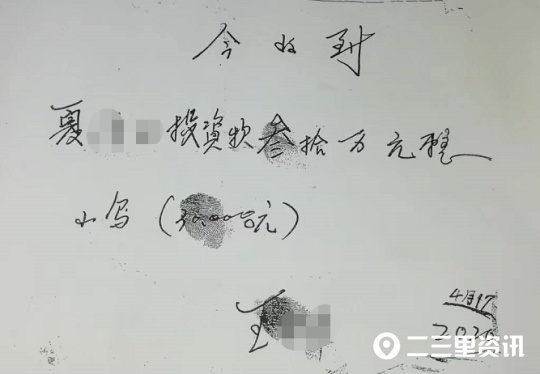 今收到
夏 投资款叁拾万元整
小写（300000元）
王
4月17
2020
二三里资讯